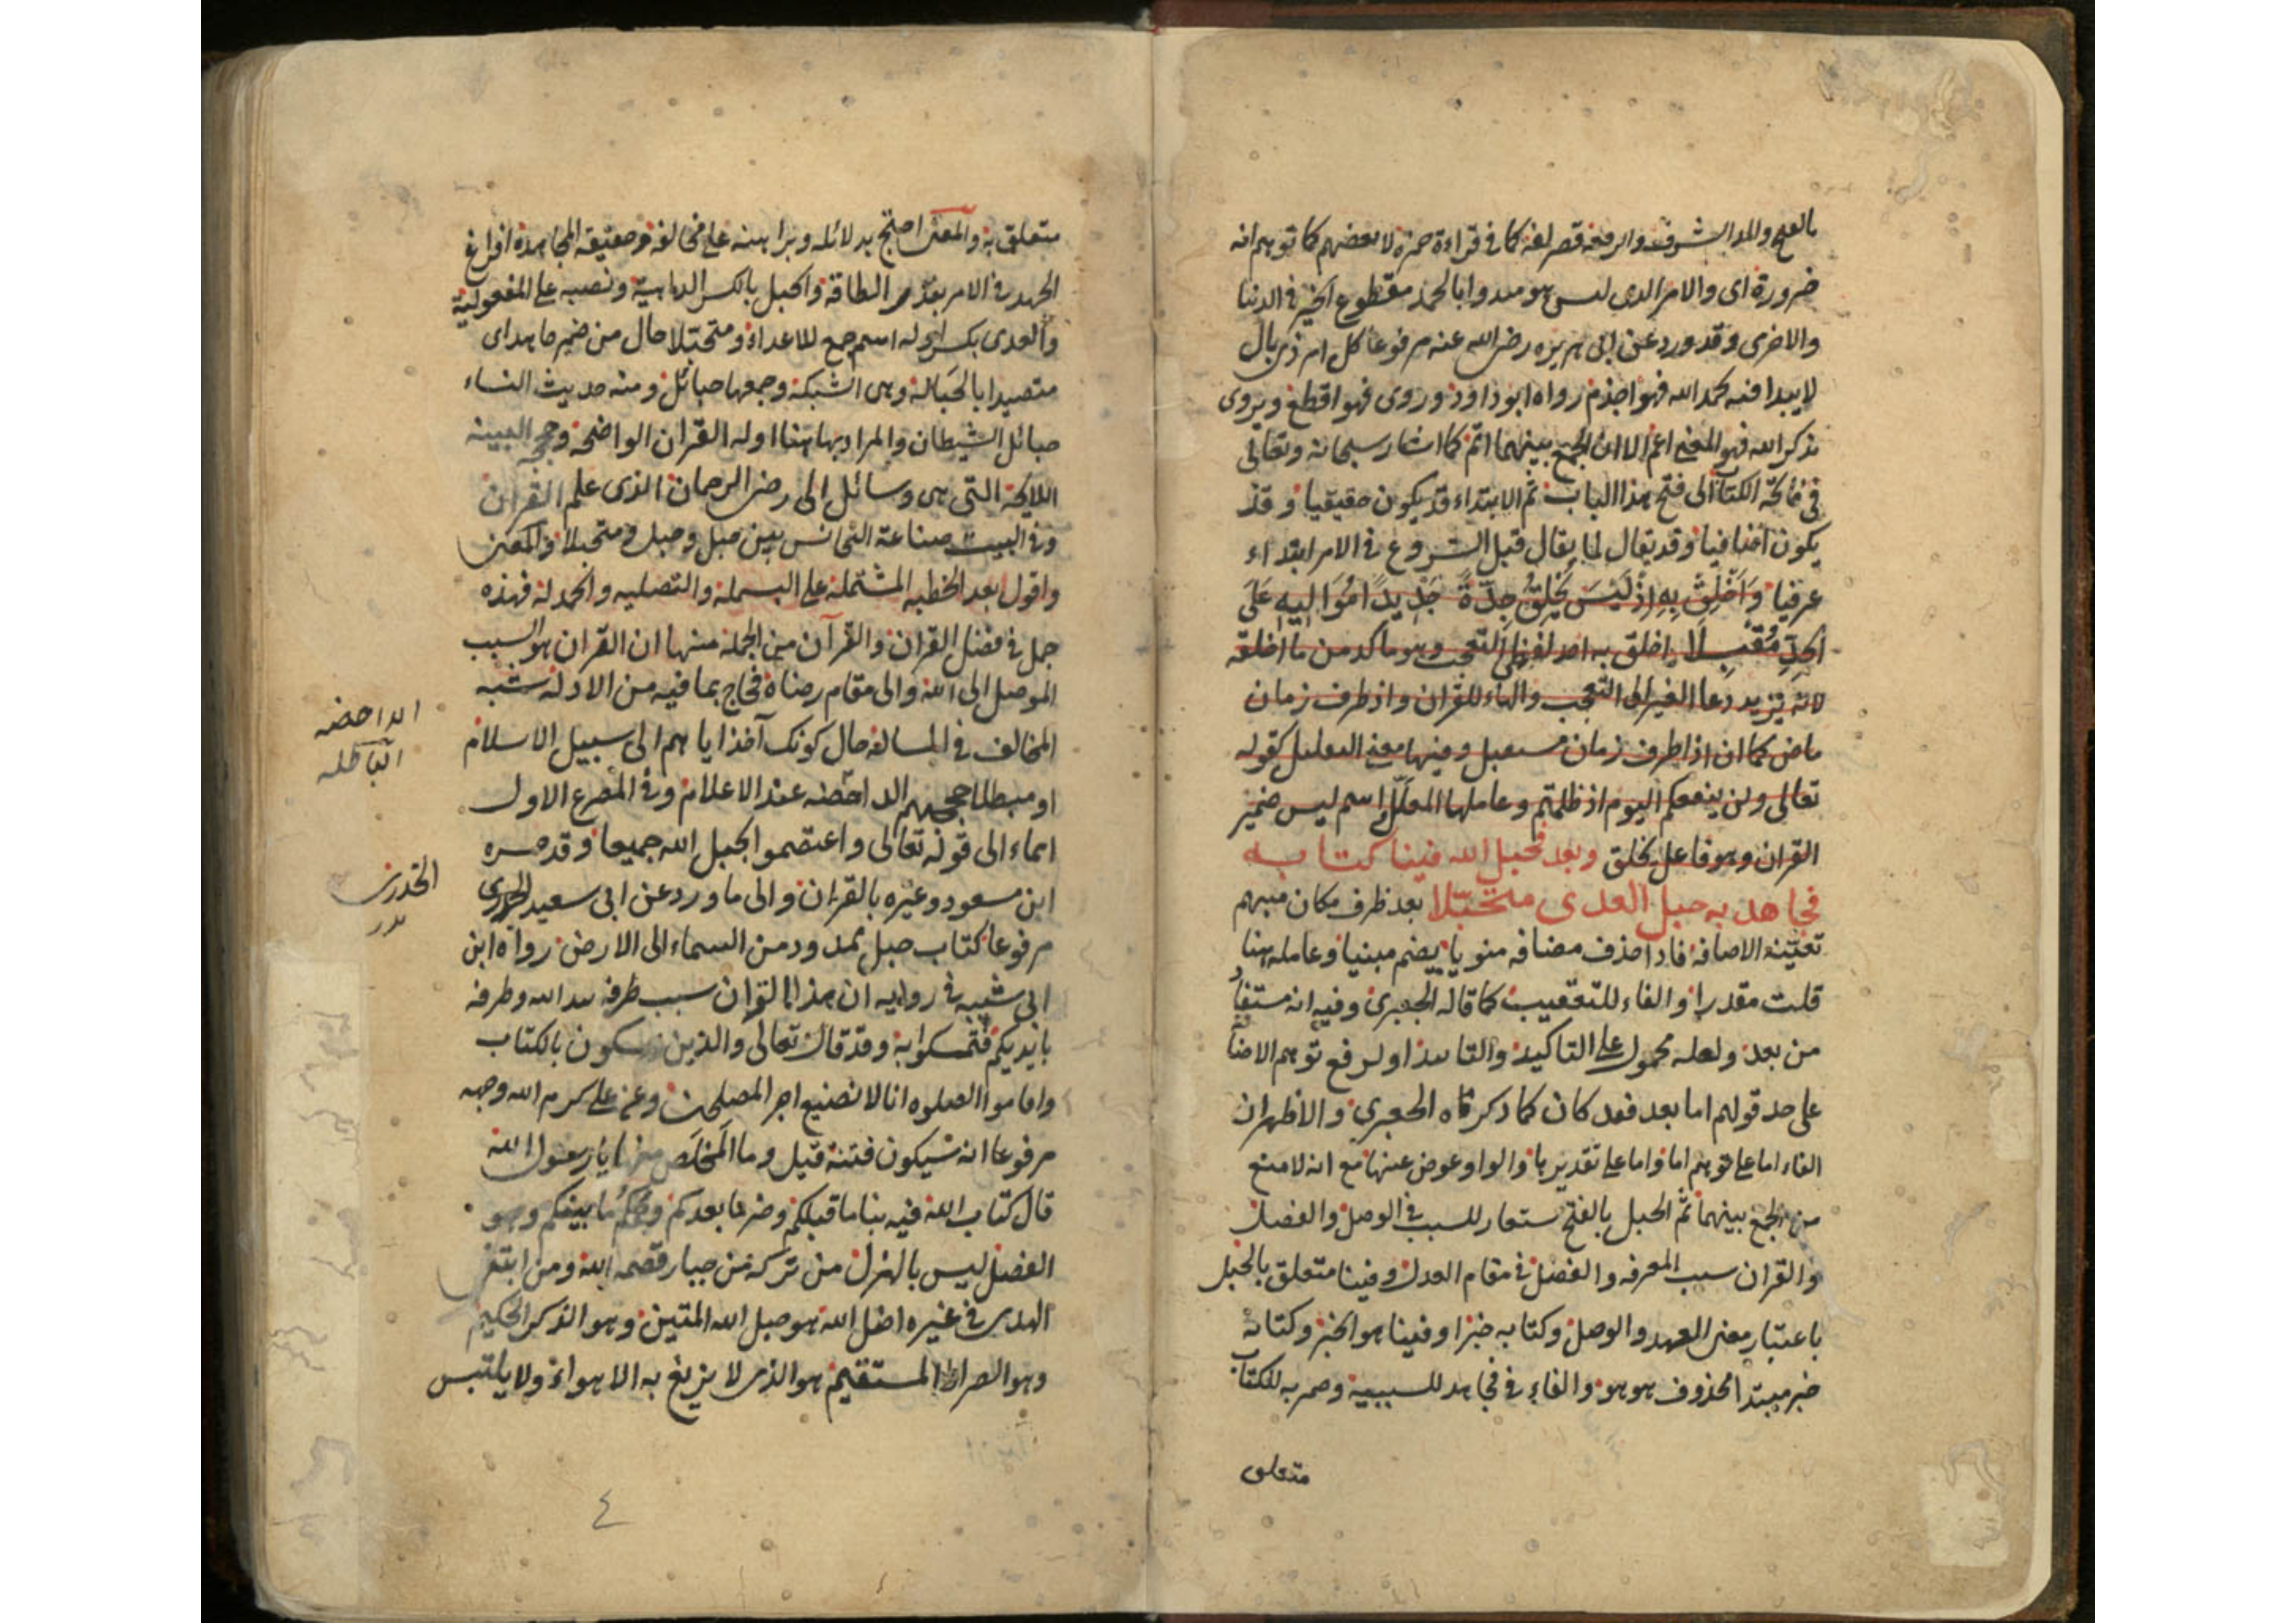 بالفتح والمد الشرف والرفعة قصر لغة كما في قراءة حمزة لا بعضهم كما توهم انه
ضرورة اى والامر الدى ليس هو مبدوا بالحمد مقطوع الخير في الدنيا
والاخرى وقد ورد عن ابى هريرة رضى الله عنه مرفوعا كل امر ذى بال
لا يبدا فيه بحمد الله فهو اجذم رواه ابو داود وروى فهو اقطع ويروى
بذكر الله فهو المعنى اعم الا ان الجمع بينهما اتم كما اشار سبحانه وتعالى
في فاتحة الكتاب الى فتح هذا الباب ثم الابتداء قد يكون حقيقيا وقد
يكون اضافيا وقد يقال لما يقال قبل الشروع في الامر ابتداء
عرفيا وَاَخْلِقْ بِهِ اِذْ لَيْسَ يَخْلُقُ جِدَّةً جَدِيدًا مُوَالِيهِ عَلَى
الجِدِّ مُقْبِلَا اخلق به احد لفظى التعجب وهو ماكد من ما اخلقه
لانه يزيد دعا الغير الى التعجب والهاء للقران واذ ظرف زمان
ماض كما ان اذا ظرف زمان مستقبل وفيها معنى التعليل كقوله
تعالى ولن ينفعكم اليوم اذ ظلمتم وعاملها المعلل اسم ليس ضمير
القران وهو فاعل يخلق وبعد فحبل الله فينا كتابه
فجاهد به حبل العدى متحبلا بعد ظرف مكان مبهم
تعينه الاضافة فاذا حذف مضافه منويا يضم مبنيا وعامله هنا
قلت مقدرا والفاء للتعقيب كما قاله الجعبرى وفيه انه مستفاد
من بعد ولعله محمول على التاكيد والتاسد او لرفع توهم الاضافة
على حد قولهم اما بعد فقد كان كما ذكرناه الجعبرى والاظهر ان
الفاء اما على توهم اما واما على تقديرها والواو عوض عنها مع انه لا منع
من الجمع بينهما ثم الحبل بالفتح ستعار للسبب في الوصل والفصل
والقران سبب المعرفه والفضل في مقام العدل وفينا متعلق بالحبل
باعتبار معنى العهد والوصل وكتابه خبر او فينا هو الخبر وكتابه
خبر مبتدا محذوف هو هو والفاء في فجاهد للسببية وضمير به للكتاب
متعلق
متعلق به والمعنى احتج بدلائله وبراهينه على مخالفه وحقيقه المجاهدة افراغ
الجهد في الامر بقدر الطاقة والحبل بالكسر الداهية ونصبه على المفعولية
والعدى بكسر اوله اسم جمع للاعداء ومتحبلا حال من ضمير جاهد اى
متصيدا بالحبالة وهى الشبكة وجمعها حبائل ومنه حديث النساء
حبائل الشيطان والمراد بها هنا ادله القران الواضحة وحججه البينه
اللايحة التى هى وسائل الى رضى الرحمان الذى علم القران
وفي البيت صناعة التجانس بين حبل وحبل ومتحبلا والمعنى
واقول بعد الخطبه المشتملة على البسملة والتصليه والحمدلة فهذه
جمل في فضل القران والقرآن من الجملة منها ان القران هو السبب
الموصل الى الله والى مقام رضاه فحاج بما فيه من الادلة ستبه
المخالف في المسالة حال كونك آخذا ياهم الى سبيل الاسلام
او مبطلا حججهم الداحضه عند الاعلام وفى المصرع الاول
ايماء الى قوله تعالى واعتصموا بحبل الله جميعا وقد فسره
ابن مسعود وغيره بالقران والى ما ورد عن ابى سعيد الخدرى
مرفوعا كتاب حبل ممدود من السماء الى الارض رواه ابن
ابى شيبه في روايه ان هذا القران سبب طرفه بيد الله وطرفه
بايديكم فتمسكوا به وقد قال تعالى والذين يمسكون بالكتاب
واقاموا الصلوه انا لا نضيع اجر المصلحين وعن على كرم الله وجهه
مرفوعا انه ستكون فتنة قيل وما المَخلَص منها يا رسول الله
قال كتاب الله فيه نبا ما قبلكم وخبر ما بعدكم وحكم ما بينكم وهو
الفصل ليس بالهزل من تركه من جبار قصمه الله ومن ابتغى
الهدى في غيره اضل الله هو حبل الله المتين وهو الذكر الحكيم
وهو الصراط المستقيم هو الذى لا يزيغ به الاهواء ولا يلتبس
الداحضه
الباطله
الخدرى
بدر
٤